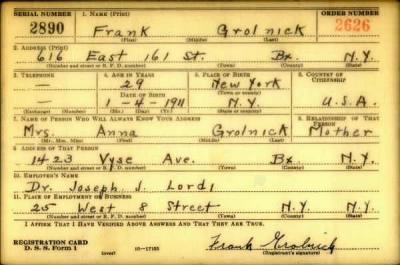 SERIAL NUMBER 1. NAME (Print) ORDER NUMBER
2890 Frank Grolnick 2626
(First) (Middle) (Last)
2. ADDRESS (Print)
616 East 161 St. Bx. N.Y.
(Number and street or R. F. D. number) (Town) (County) (State)
3. TELEPHONE 4. AGE IN YEARS 5. PLACE OF BIRTH 6. COUNTRY OF CITIZENSHIP
— 29 New York
DATE OF BIRTH (Town or county)
— 1-4-1911 N.Y. U.S.A.
(Exchange) (Number) (Mo.) (Day) (Yr.) (State or country)
7. NAME OF PERSON WHO WILL ALWAYS KNOW YOUR ADDRESS 8. RELATIONSHIP OF THAT PERSON
Mrs. Anna Grolnick Mother
(Mr., Mrs., Miss) (First) (Middle) (Last)
9. ADDRESS OF THAT PERSON
1423 Vyse Ave. Bx. N.Y.
(Number and street or R. F. D. number) (Town) (County) (State)
10. EMPLOYER'S NAME
Dr. Joseph J. Lordi
11. PLACE OF EMPLOYMENT OR BUSINESS
25 West 8 Street N.Y. N.Y.
(Number and street or R. F. D. number) (Town) (County) (State)
I AFFIRM THAT I HAVE VERIFIED ABOVE ANSWERS AND THAT THEY ARE TRUE.
REGISTRATION CARD
D. S. S. Form 1 (over) 16—17105 Frank Grolnick
(Registrant's signature)